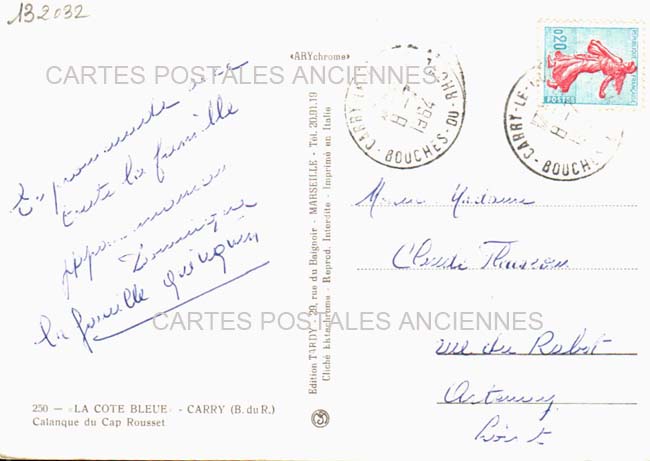 132032
«ARYchrome»
CARTES POSTALES ANCIENNES
En promenade avec
toute la famille
Dominique
la famille
250 — «LA COTE BLEUE» - CARRY (B. du R.)
Calanque du Cap Rousset
Edition TARDY - 29, rue du Baignoir - MARSEILLE - Tél. 20.91.19
Cliché Ektachrome - Reprod. Interdite - Imprimé en Italie
CARRY-LE- BOUCHES-DU-RHONE
1964
CARRY-LE- BOUCHES
REPUBLIQUE FRANÇAISE
0,20
POSTES
Madame
Claude
rue du Rabot
Artenay
Loiret
CARTES POSTALES ANCIENNES